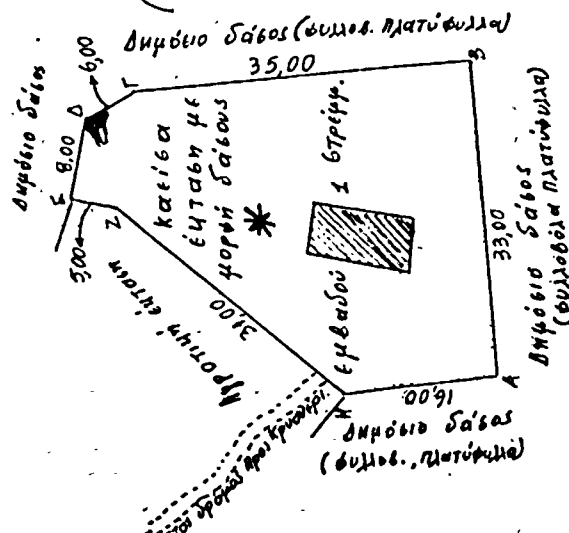 Δημόσιο δάσος (φυλλοβ. πλατύφυλλα)
35,00
Β
6,00
Γ
Δ
Δημόσιο δάσος
8.00
Ε
5,00
Ζ
καείσα
έκταση με
μορφή δάσους
εμβαδού 1 στρέμμ.
33,00
Δημόσιο δάσος
(φυλλοβόλα πλατύφυλλα)
31,00
Αγροτική έκταση
Η
16,00
Α
Δημόσιο δάσος
(φυλλοβ., πλατύφυλλα)
δρόμος προς